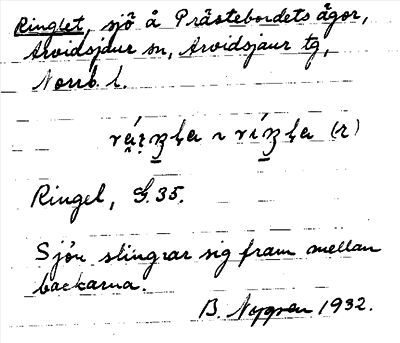 Ringlet, sjö å Prästebordets ägor,
Arvidsjaur sn, Arvidsjaur tg,
Norrb. l.
Ringel, G. 35.
Sjön slingrar sig fram mellan
backarna.
B. Nygren 1932.